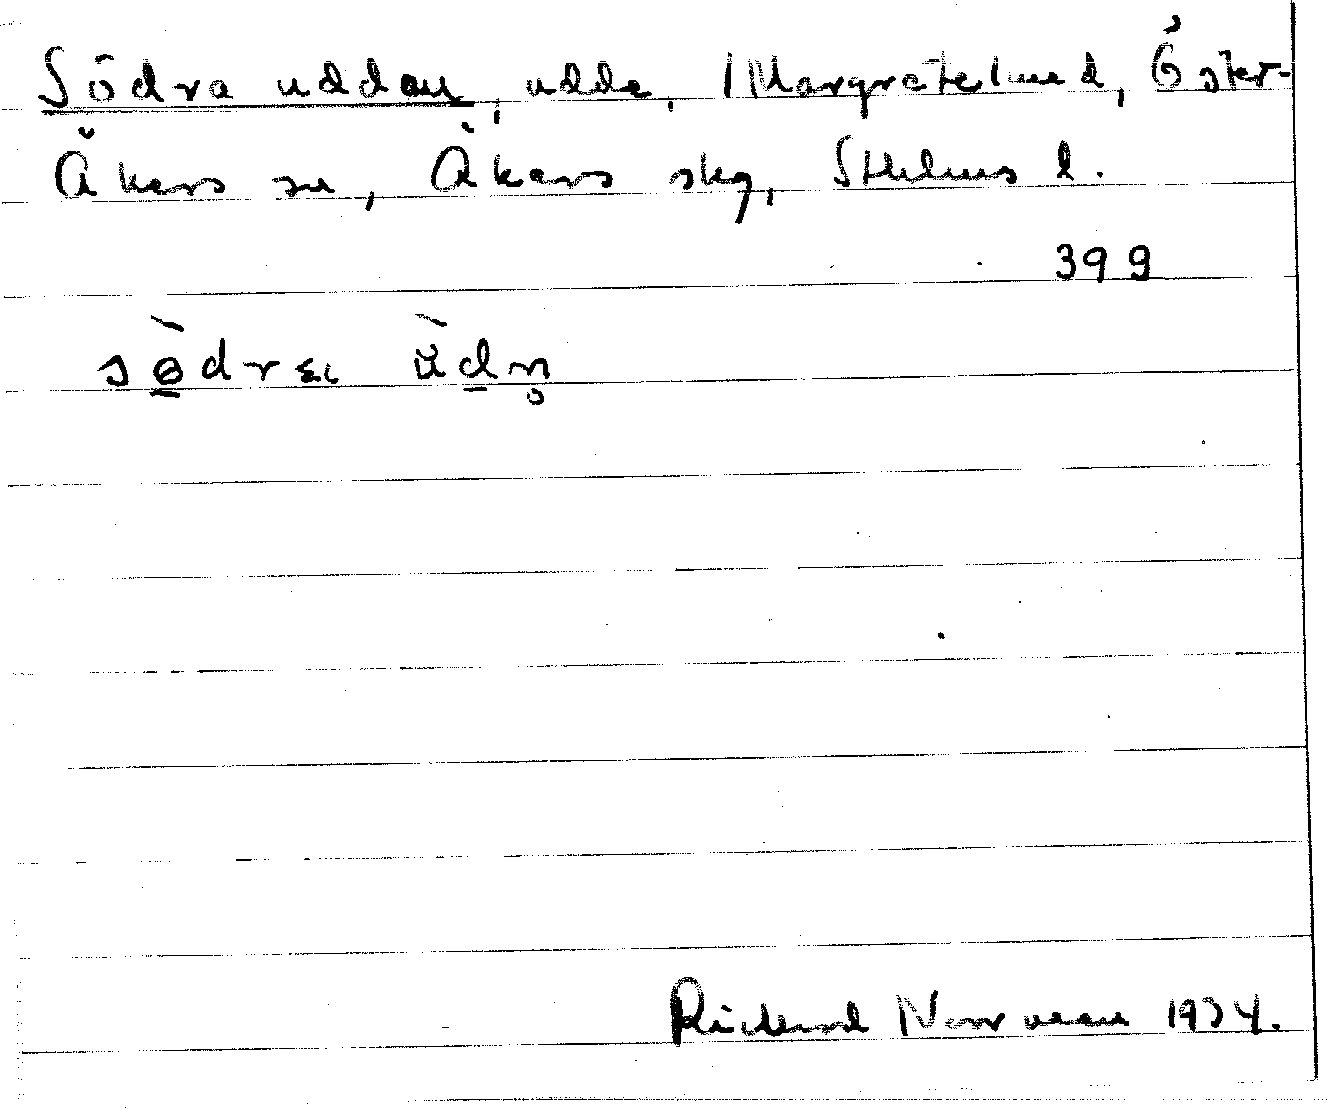 Södra uddan, udde, Margretelund, Öster-
Åkers sn, Åkers skg, Sthlms l.
399
Richard Norrman 1934.